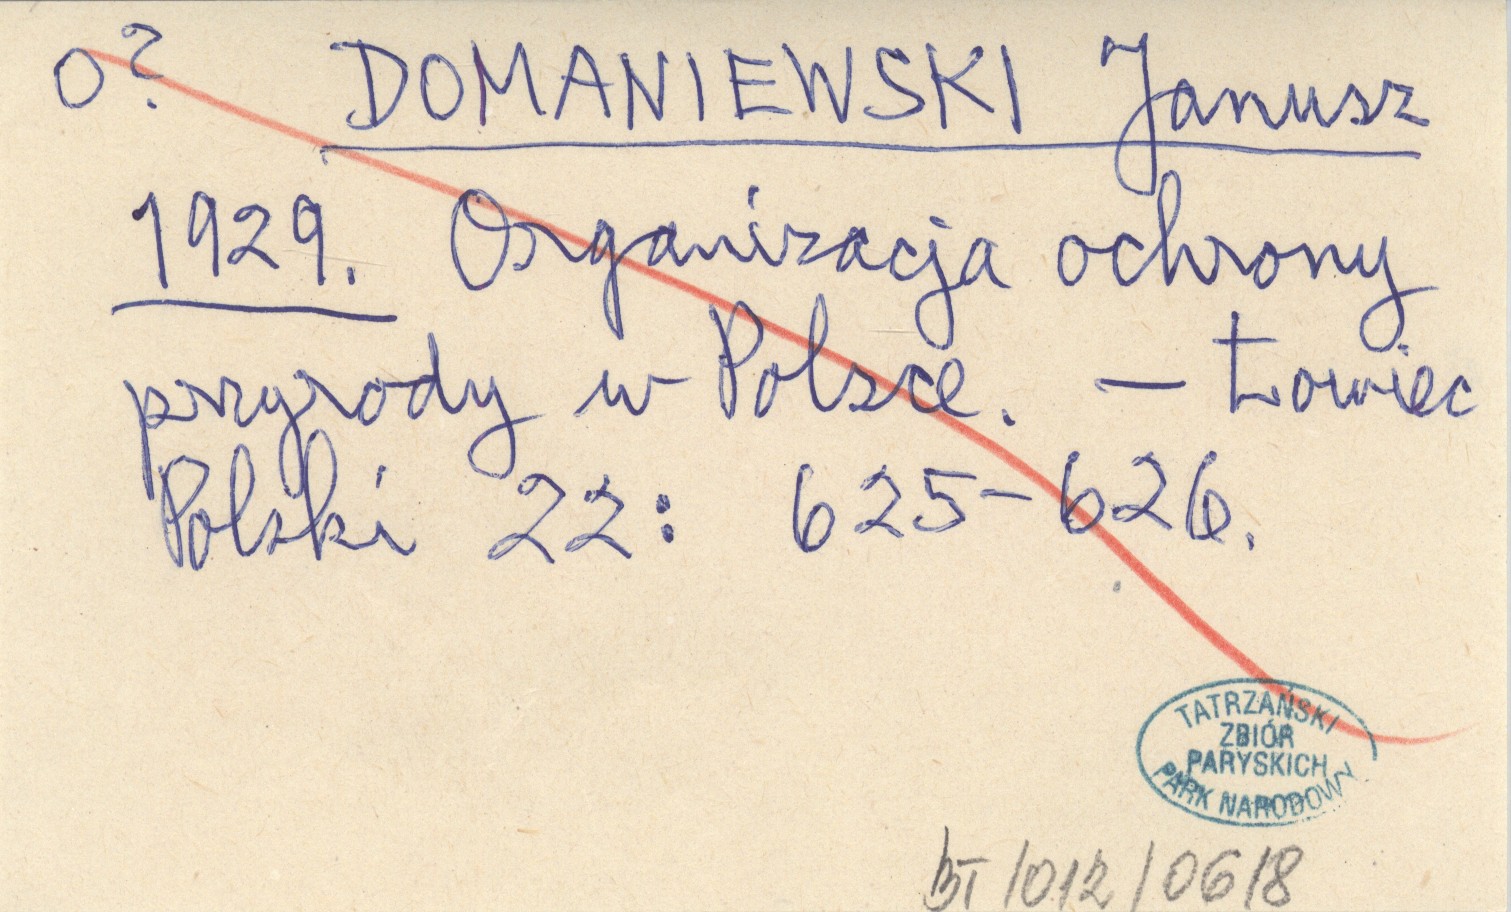 o? DOMANIEWSKI Janusz
1929. Organizacja ochrony
przyrody w Polsce. — Łowiec
Polski 22: 625-626.
TATRZAŃSKI
ZBIÓR
PARYSKICH
PARK NARODOWY
BT/012/0618